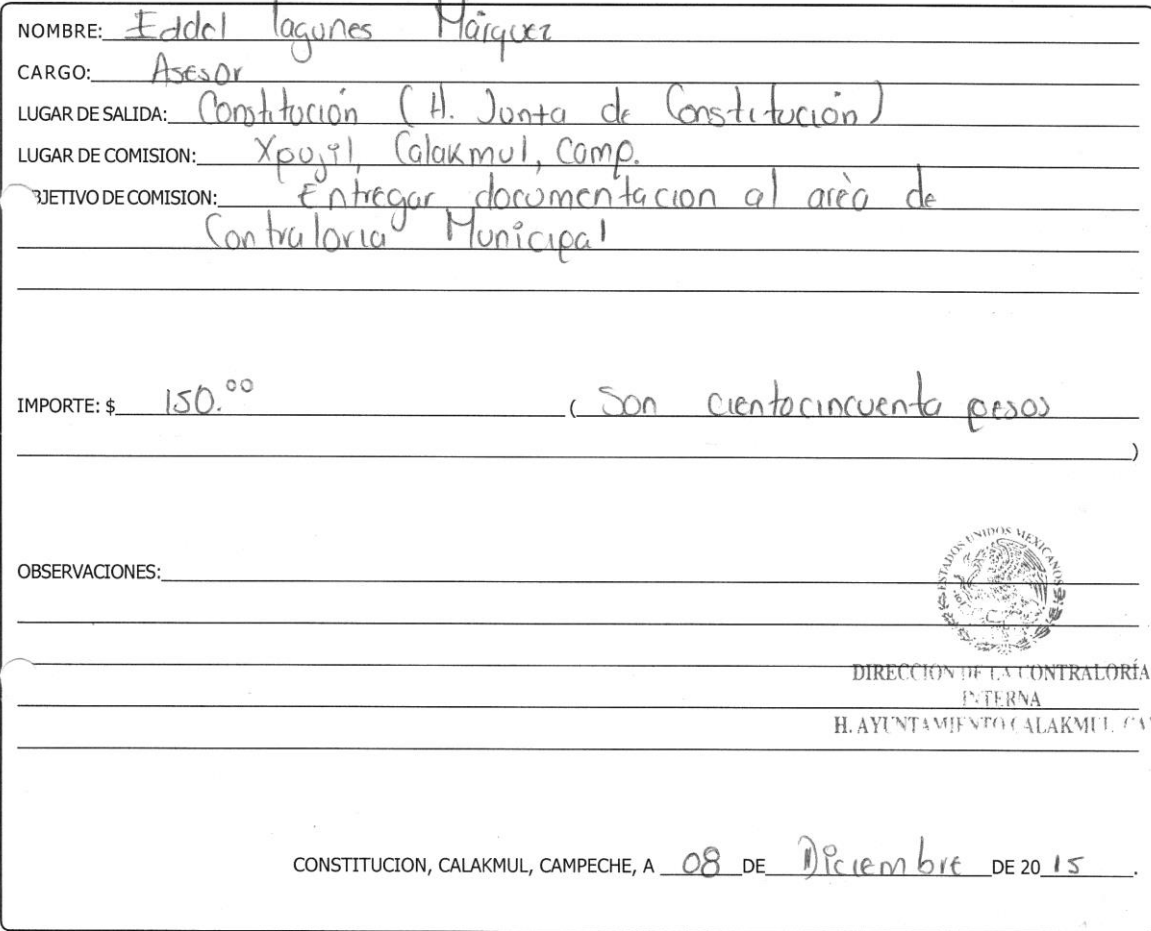 NOMBRE: Eddel lagunes Márquez
CARGO: Asesor
LUGAR DE SALIDA: Constitución (H. Junta de Constitución)
LUGAR DE COMISION: Xpujil, Calakmul, Camp.
BJETIVO DE COMISION: Entregar documentacion al area de
Contraloria Municipal
IMPORTE: $ 150.00 ( Son cientocincuenta pesos
)
OBSERVACIONES:
ESTADOS UNIDOS MEXICANOS
DIRECCION DE LA CONTRALORÍA
INTERNA
H. AYUNTAMIENTO CALAKMUL, CA
CONSTITUCION, CALAKMUL, CAMPECHE, A 08 DE Diciembre DE 20 15.